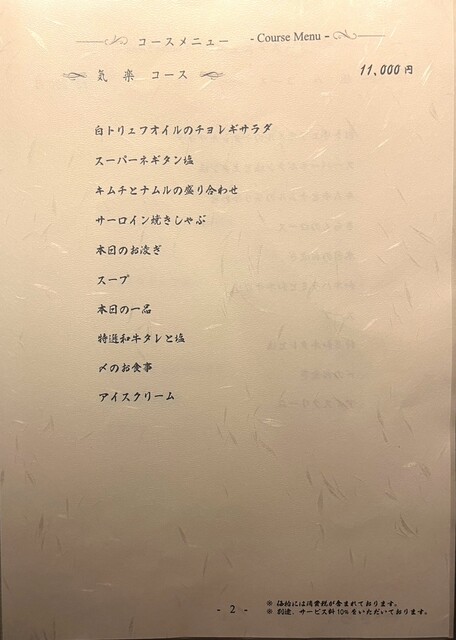 コースメニュー - Course Menu -
気 楽 コース 11,000円
白トリュフオイルのチョレギサラダ
スーパーネギタン塩
キムチとナムルの盛り合わせ
サーロイン焼きしゃぶ
本日のお凌ぎ
スープ
本日の一品
特選和牛タレと塩
〆のお食事
アイスクリーム
※ 価格には消費税が含まれております。
- 2 - ※ 別途、サービス料10%をいただいております。